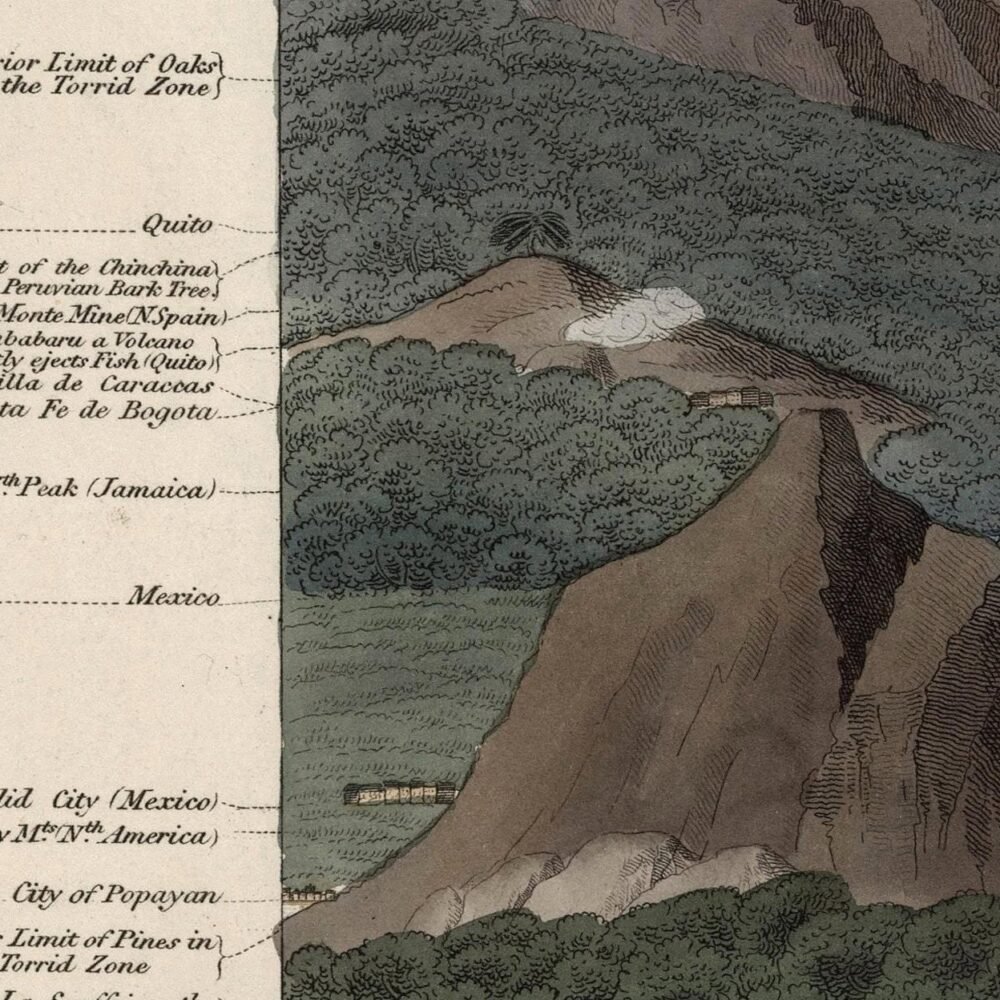 rior Limit of Oaks
the Torrid Zone
Quito
t of the Chinchina
Peruvian Bark Tree.
Monte Mine (N. Spain)
ababaru a Volcano
tly ejects Fish (Quito)
illa de Caraccas
ta Fe de Bogota
rth Peak (Jamaica)
Mexico
lid City (Mexico)
y Mts. (Nth. America)
City of Popayan
Limit of Pines in
Torrid Zone